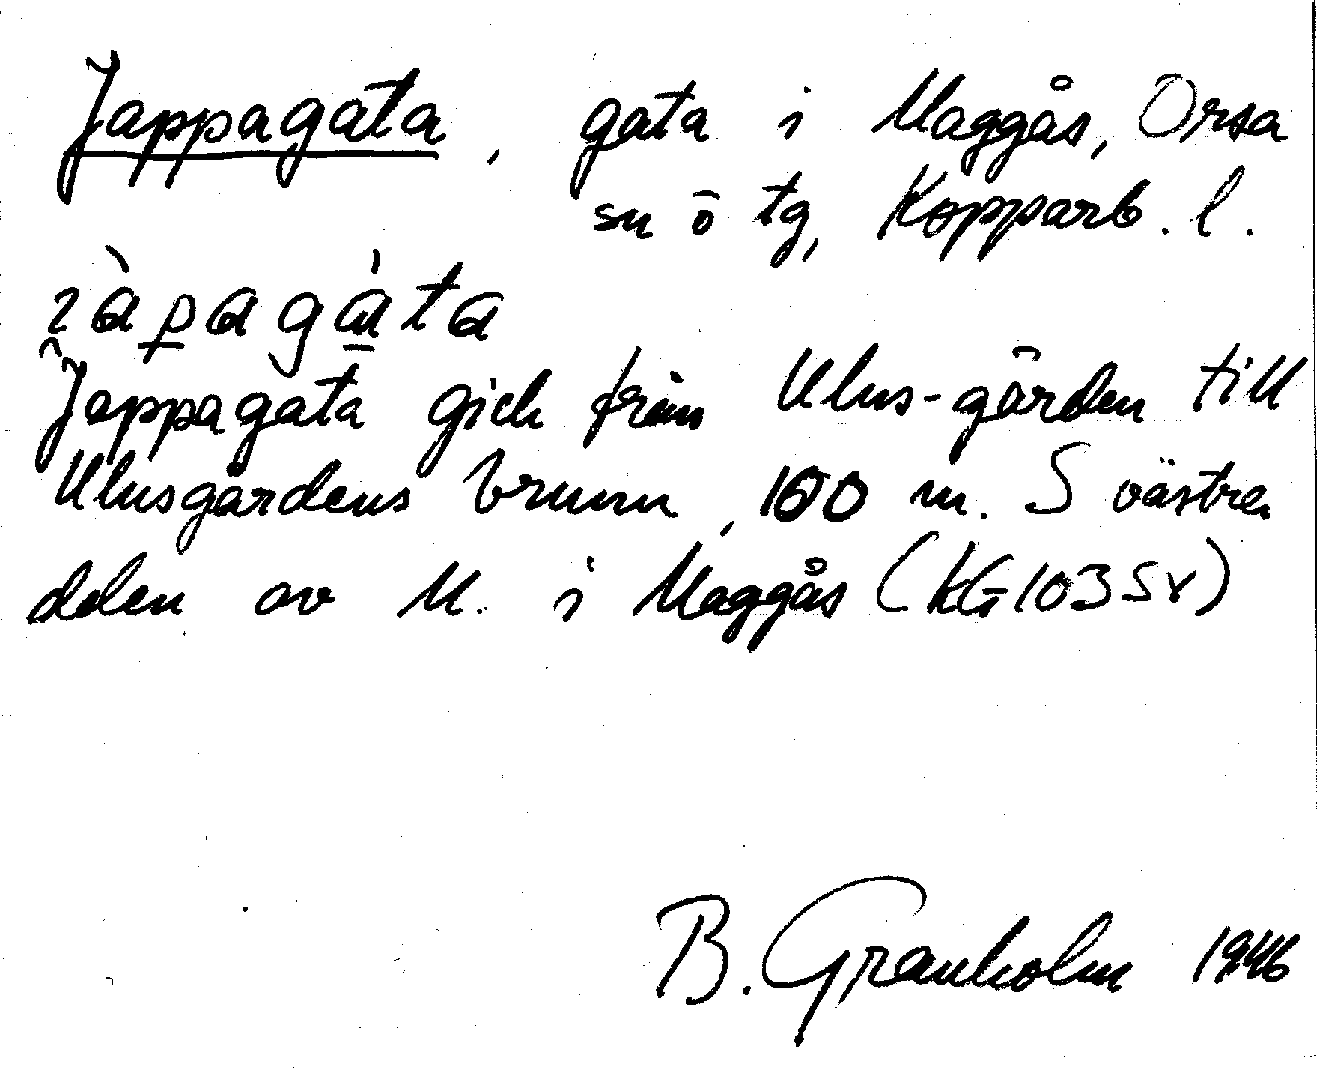 Jappagata, gata i Maggås, Orsa
sn ö tg, Kopparb. l.
Jappagata gick från Ulus-gården till
Ulusgårdens brunn, 100 m. S västra
delen av U. i Maggås (KG 103 Sv)
B. Granholm 1946